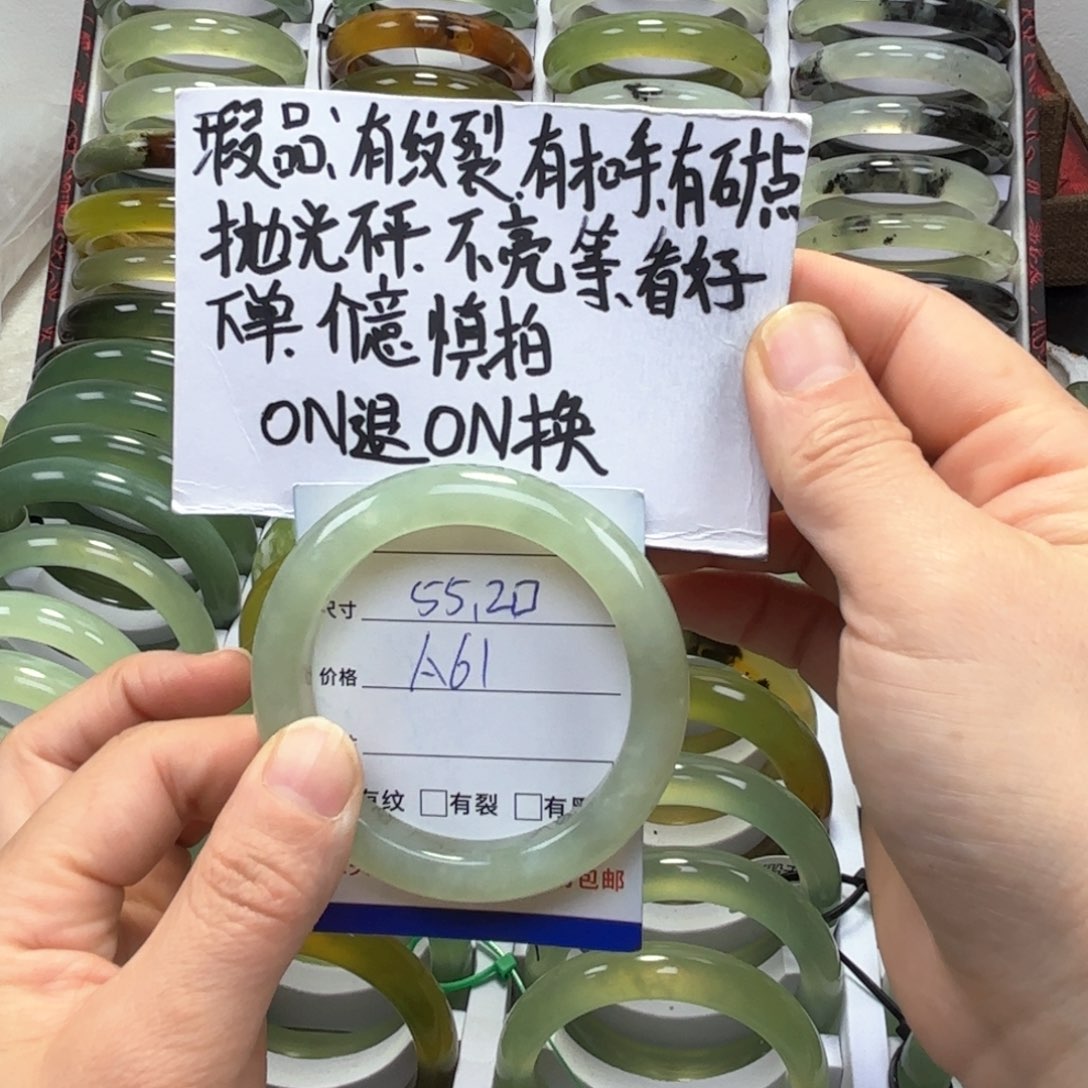 瑕品、有纹裂、有扣手、有砂点
抛光不平、不亮等、看好
下单、介意慎拍
ON退ON换
尺寸 55,20
价格 A61
有纹 □有裂 □有
包邮